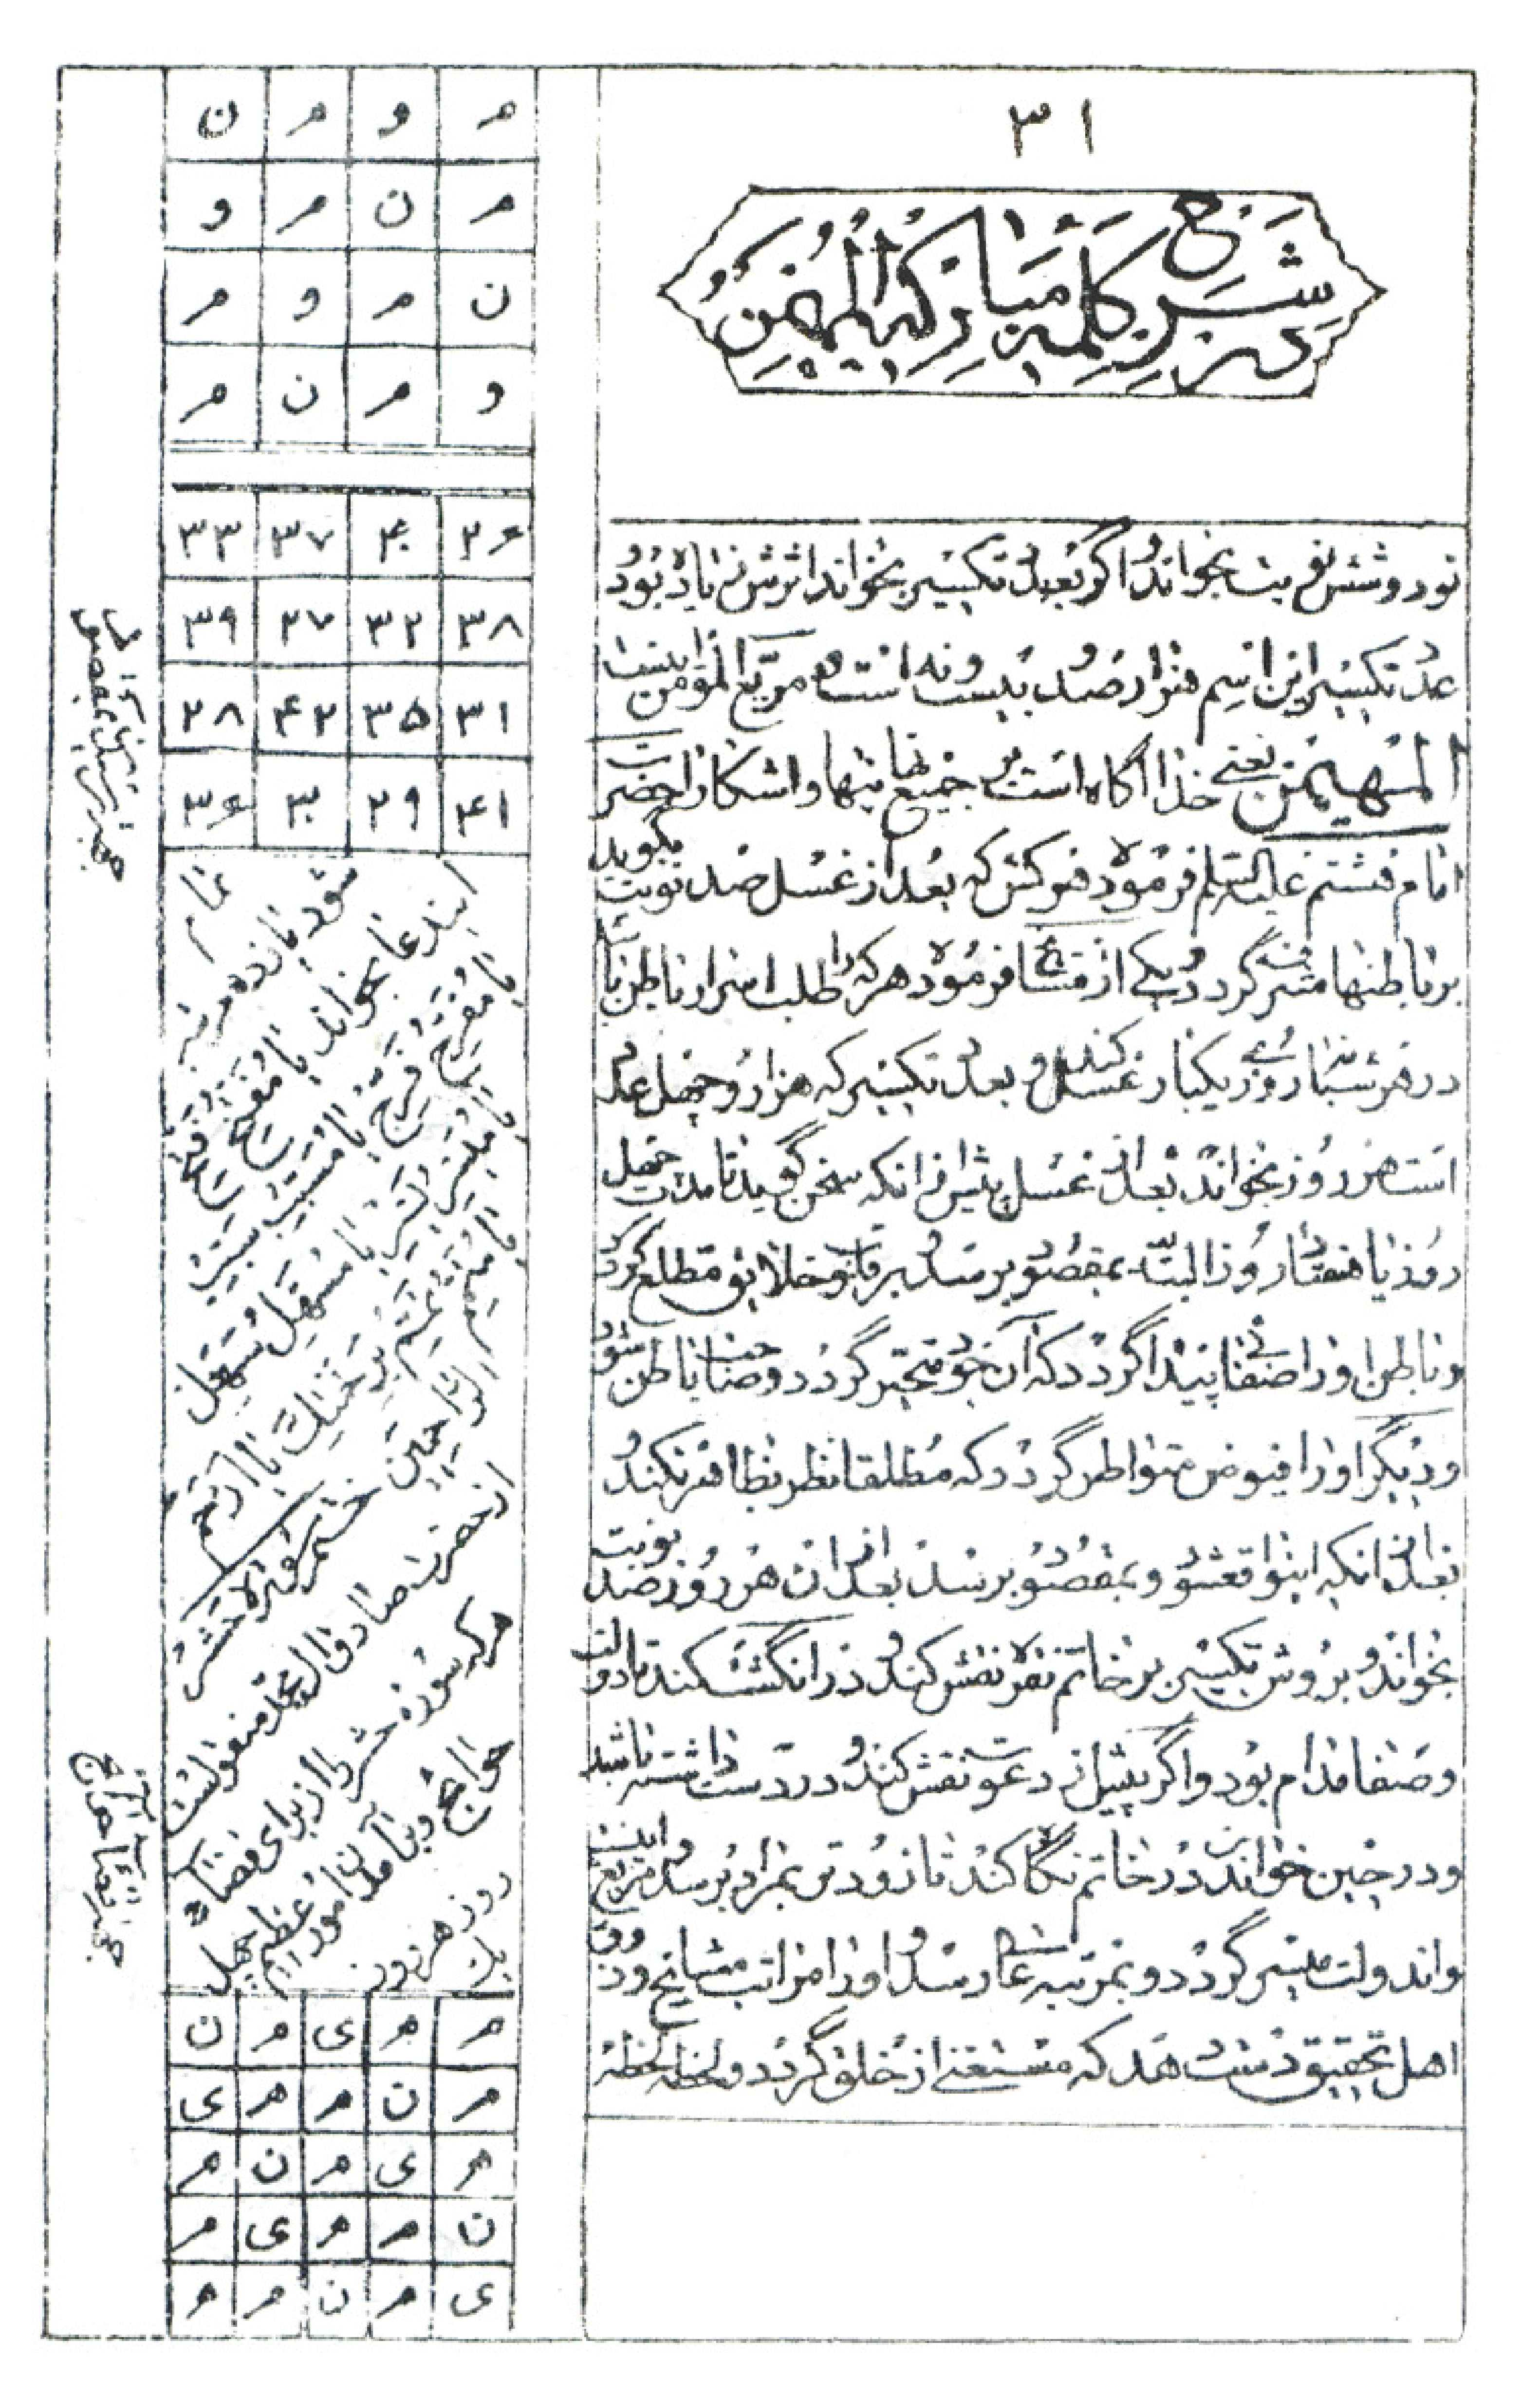 ۳۱
شرح
کلمه مبارکه المهیمن
نود و شش نوبت بخواند و اگر بعدد تکسیر بخواند اثرش زیاده بود
عدد تکسیر این اسم هزار و صد و بیست و نه است و مربع المؤمن اینست
المهیمن یعنی خدا آگاه است بر جمیع نهانیها و اشکارا حضرت
امام هشتم علیه السلم فرموده هر کس که بعد از غسل صد نوبت بگوید
بر باطنها مشرف گردد و یکی از مشایخ فرموده هر که را طلب اسرار باطن باشد
در هر شبانه روزی یکبار غسل کند و بعدد تکسیر که هزار و چهل عدد
است هر روز بخواند بعد از غسل پیش از انکه سخن گوید تا مدت چهل
روز یا هفتاد روز البته بمقصود برسد و بر خلایق مطلع گردد
و باطن او را صفائی پیدا گردد که از خود متحیر گردد و صاحب باطن شود
و دیگر او را فیوض متواطر گردد که مطلقا نظر بظاهر نکند و
بعد از انکه اینواقع شود و بمقصود برسد بعد از ان هر روز صد نوبت
بخواند و بروش تکسیر بر خاتم نقره نقش کند و در انگشت کند تا دولت
و صفا مدام بود و اگر پیش از دعوت نقش کند و در دست داشته باشد
و در حین خواندن در خاتم نگاه کند تا زودتر بمراد برسد و مربع اینست
و اند ولت میسر گردد و بمرتبه عالی رسد و او را مراتب مشایخ و ذوق
اهل تحقیق دست دهد که مستغنی از خلق گردد و لحظه لحظه
م و م ن
م ن م و
ن م و م
و م ن م
۳۶ ۴۰ ۳۷ ۳۳
۳۸ ۳۲ ۲۷ ۳۹
۳۱ ۳۵ ۴۲ ۲۸
۴۱ ۲۹ ۳۰ ۳۶
شود پانزده مرتبه
ایندعا بخواند یا مفتح فتح
یا مفرج فرج یا مسبب سبب
یا میسر یسر یا مسهل سهل
یا متمم تمم برحمتک یا ارحم
الراحمین ختم سوره الحشر
از حضرت صادق ال محمد منقولست
هر که سوره حشر را از برای قضاء
حوائج و بر آمدن امور عظیم چهل
روز هر روز
م ه ی م ن
م ن م ه ی
ه ی م ن م
ن م ه ی م
ی م ن م ه